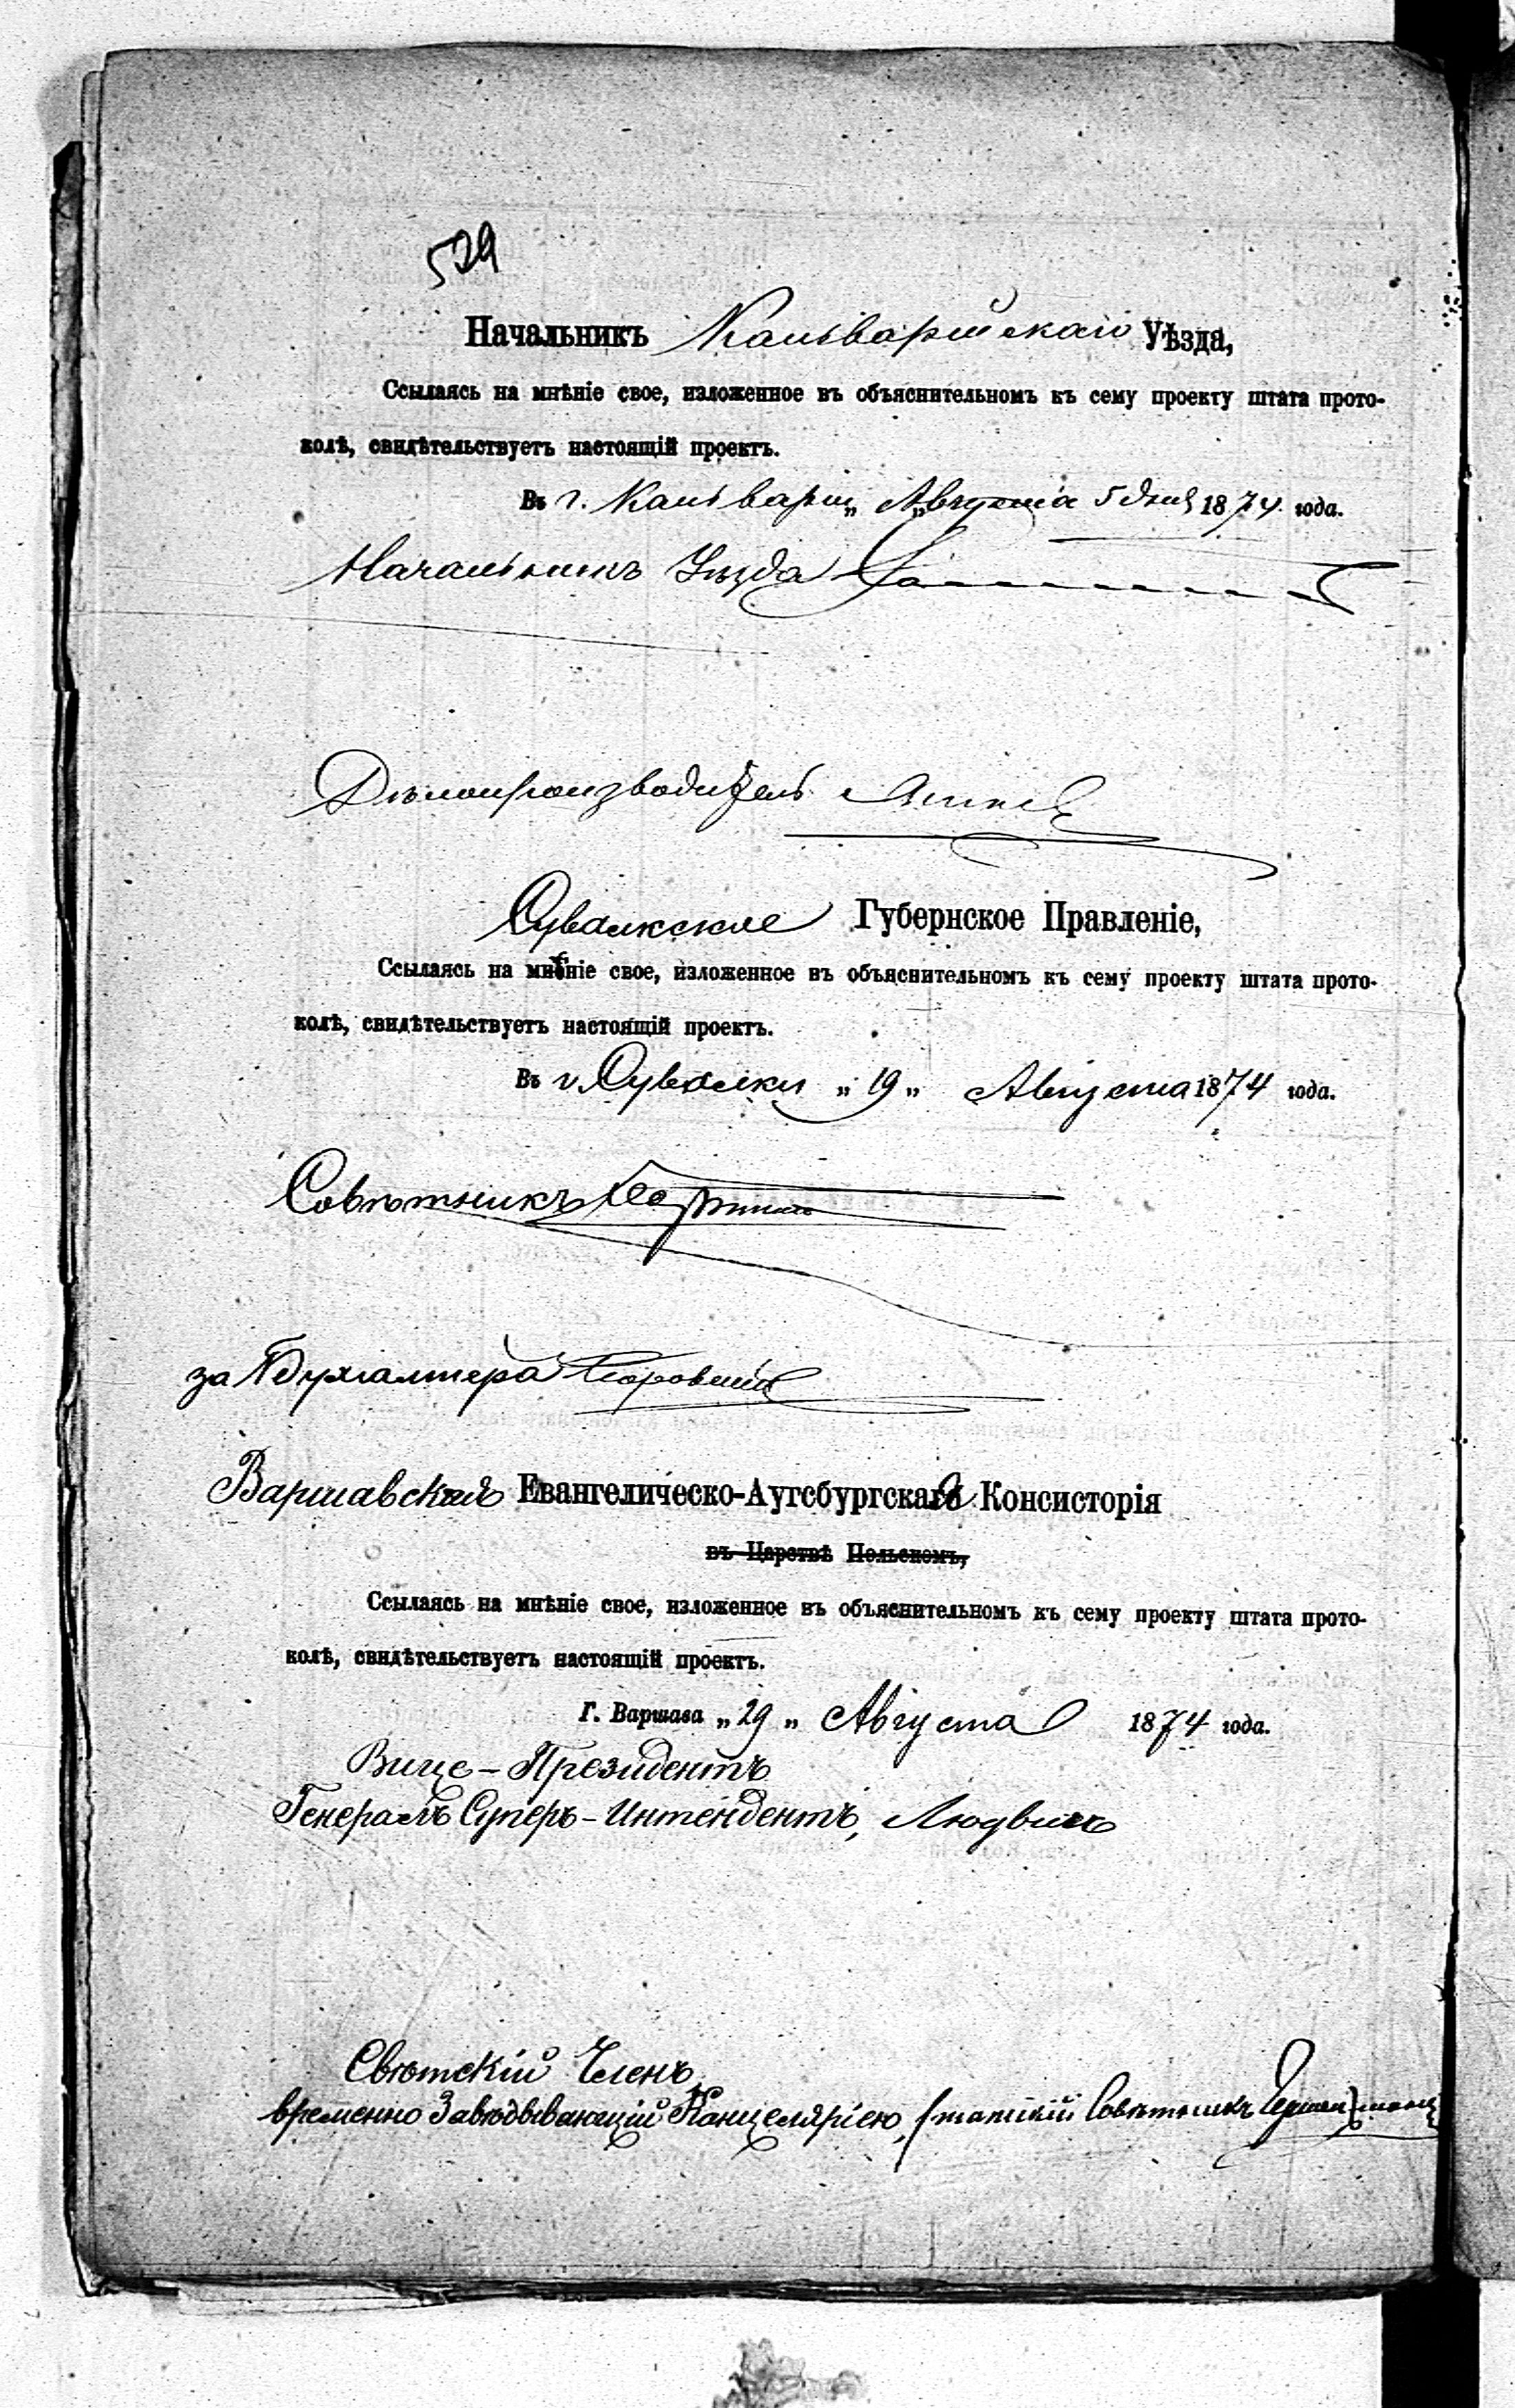 529
Начальникъ Кальварійскаго Уѣзда,
Ссылаясь на мнѣніе свое, изложенное въ объяснительномъ къ сему проекту штата прото-
колѣ, свидѣтельствуетъ настоящій проектъ.
Въ г. Кальваріи „ Августа 5 дня 1874 года.
Начальникъ Уѣзда
Дѣлопроизводитель
Сувалкское Губернское Правленіе,
Ссылаясь на мнѣніе свое, изложенное въ объяснительномъ къ сему проекту штата прото-
колѣ, свидѣтельствуетъ настоящій проектъ.
Въ г. Сувалки „ 19 „ Августа 1874 года.
Совѣтникъ
за Бухгалтера
Варшавская Евангелическо-Аугсбургская Консисторія
въ Царствѣ Польскомъ,
Ссылаясь на мнѣніе свое, изложенное въ объяснительномъ къ сему проекту штата прото-
колѣ, свидѣтельствуетъ настоящій проектъ.
Г. Варшава „ 29 „ Августа 1874 года.
Вице-Президентъ
Генералъ Суперъ-Интендентъ, Людвигъ
Свѣтскій Членъ,
временно Завѣдывающій Канцеляріею, Статскій Совѣтникъ